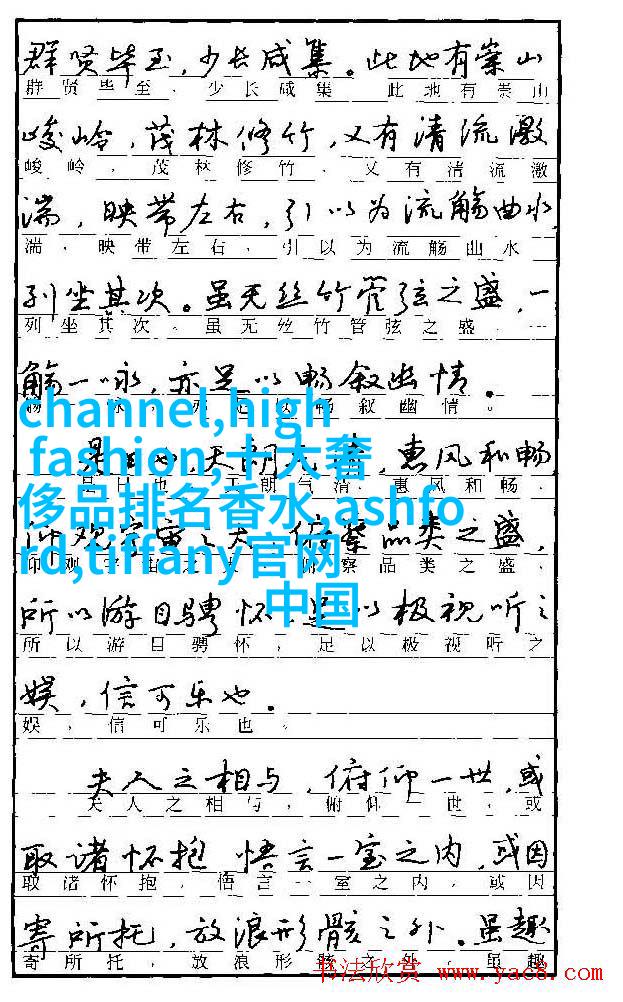 群贤毕至，少长咸集。此地有崇山
群贤毕至，少长咸集。此地有崇山
峻岭，茂林修竹，又有清流激
峻岭，茂林修竹，又有清流激
湍，映带左右，引以为流觞曲水，
湍，映带左右，引以为流觞曲水，
列坐其次。虽无丝竹管弦之盛，一
列坐其次。虽无丝竹管弦之盛，一
觞一咏，亦足以畅叙幽情。
畅叙幽情。
channel,high
fashion,十大奢
侈品排名香水,ashfo
rd,tiffany官网
中国
惠风和畅
惠风和畅，
品类之盛，
察品类之盛，
所以游目骋怀，足以极视听之
所以游目骋怀，足以极视听之
娱，信可乐也。
娱，信可乐也。
夫人之相与，俯仰一世，或
夫人之相与，俯仰一世，或
取诸怀抱 悟言一室之内，或因
取诸怀抱，悟言一室之内，或因
寄所托，放浪形骸之外。虽趣
寄所托，放浪形骸之外。虽趣
书法欣赏 www.yac8.com